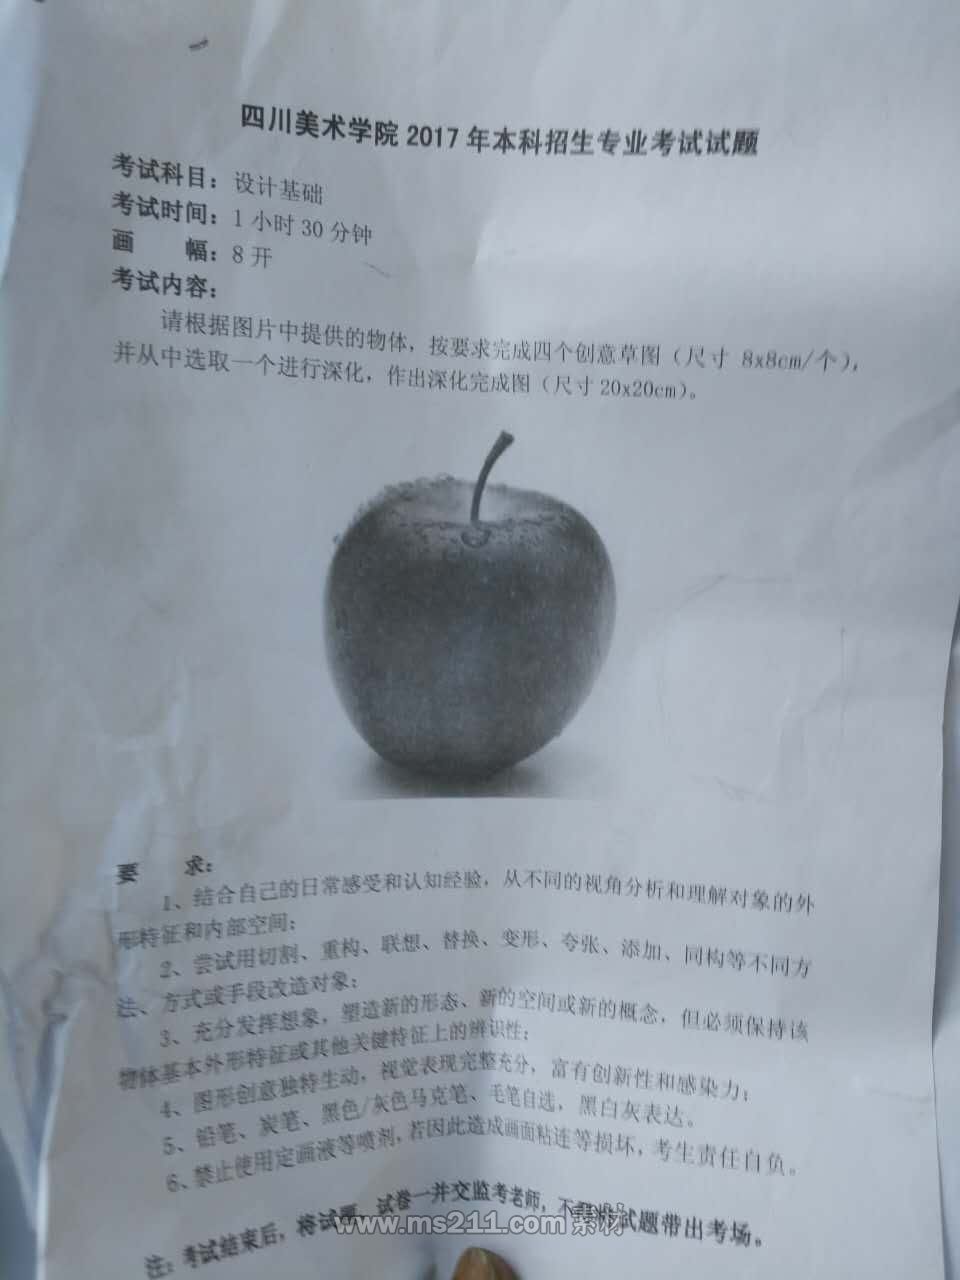 四川美术学院 2017 年本科招生专业考试试题
考试科目：设计基础
考试时间：1 小时 30 分钟
画　　幅：8 开
考试内容：
请根据图片中提供的物体，按要求完成四个创意草图（尺寸 8x8cm/个），
并从中选取一个进行深化，作出深化完成图（尺寸 20x20cm）。
要　　求：
1、结合自己的日常感受和认知经验，从不同的视角分析和理解对象的外
形特征和内部空间；
2、尝试用切割、重构、联想、替换、变形、夸张、添加、同构等不同方
法、方式或手段改造对象；
3、充分发挥想象，塑造新的形态、新的空间或新的概念，但必须保持该
物体基本外形特征或其他关键特征上的辨识性；
4、图形创意独特生动，视觉表现完整充分，富有创新性和感染力；
5、铅笔、炭笔、黑色/灰色马克笔、毛笔自选，黑白灰表达。
6、禁止使用定画液等喷剂，若因此造成画面粘连等损坏，考生责任自负。
注：考试结束后，将试题、试卷一并交监考老师，不要将试题带出考场。
www.ms211.com 素材